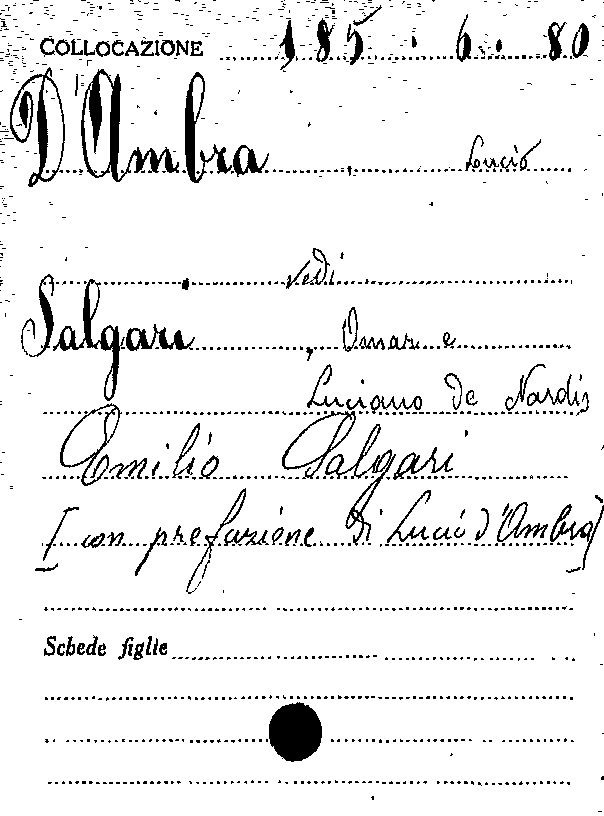 COLLOCAZIONE 185.6.80
D'Ambra, Lucio
vedi
Salgari, Omar e
Luciano De Nardis
Emilio Salgari
[con prefazione di Lucio d'Ambra]
Schede figlie